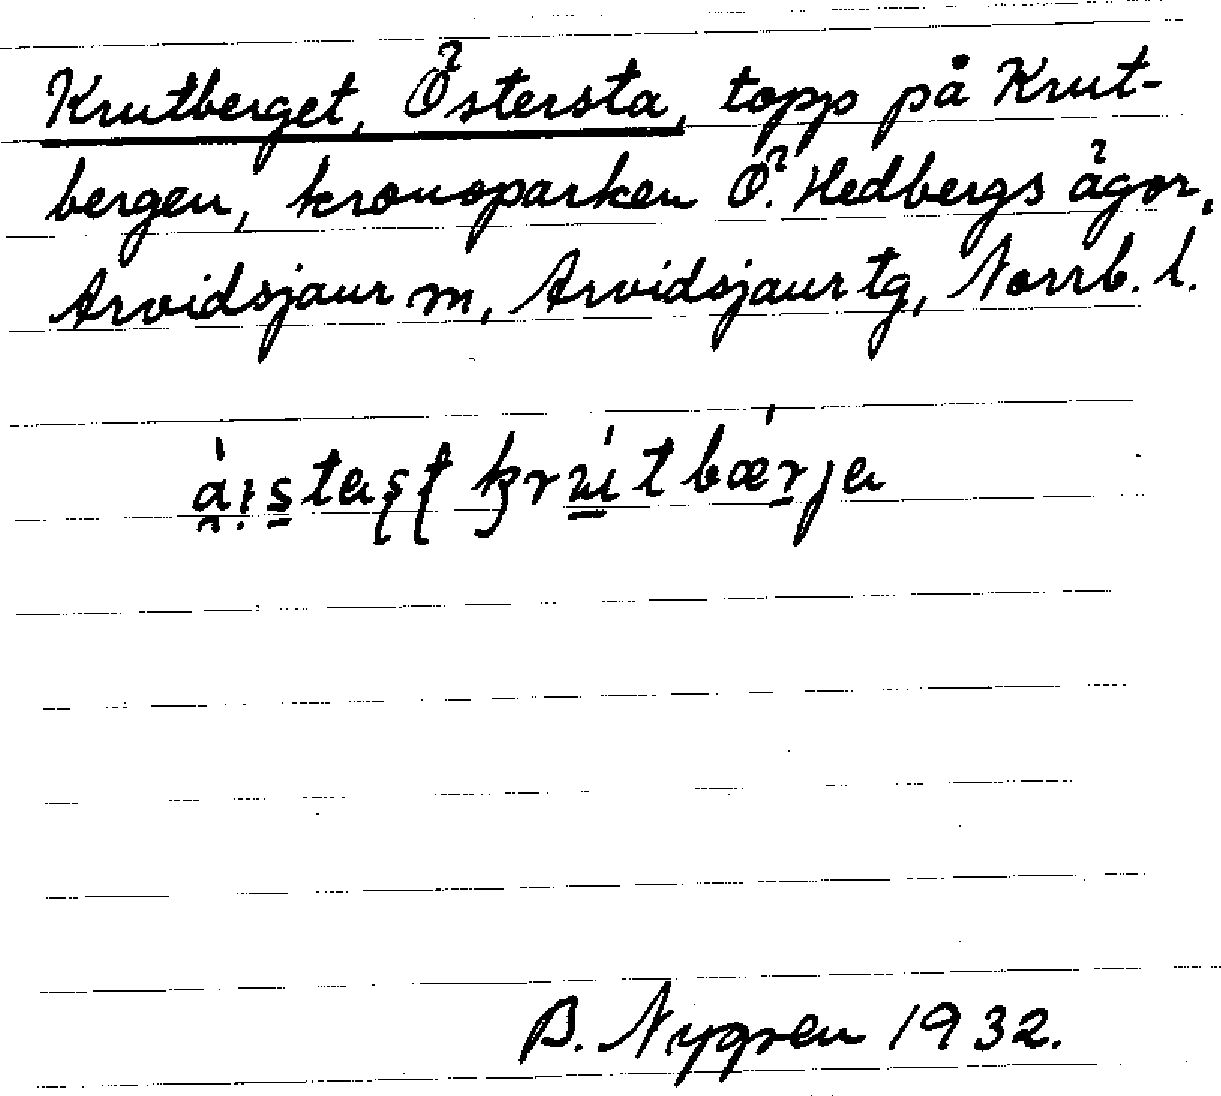 Krutberget, Östersta, topp på Krut-
bergen, kronoparken Ö. Hedbergs ägor,
Arvidsjaur m, Arvidsjaur tg, Norrb. l.
B. Nygren 1932.